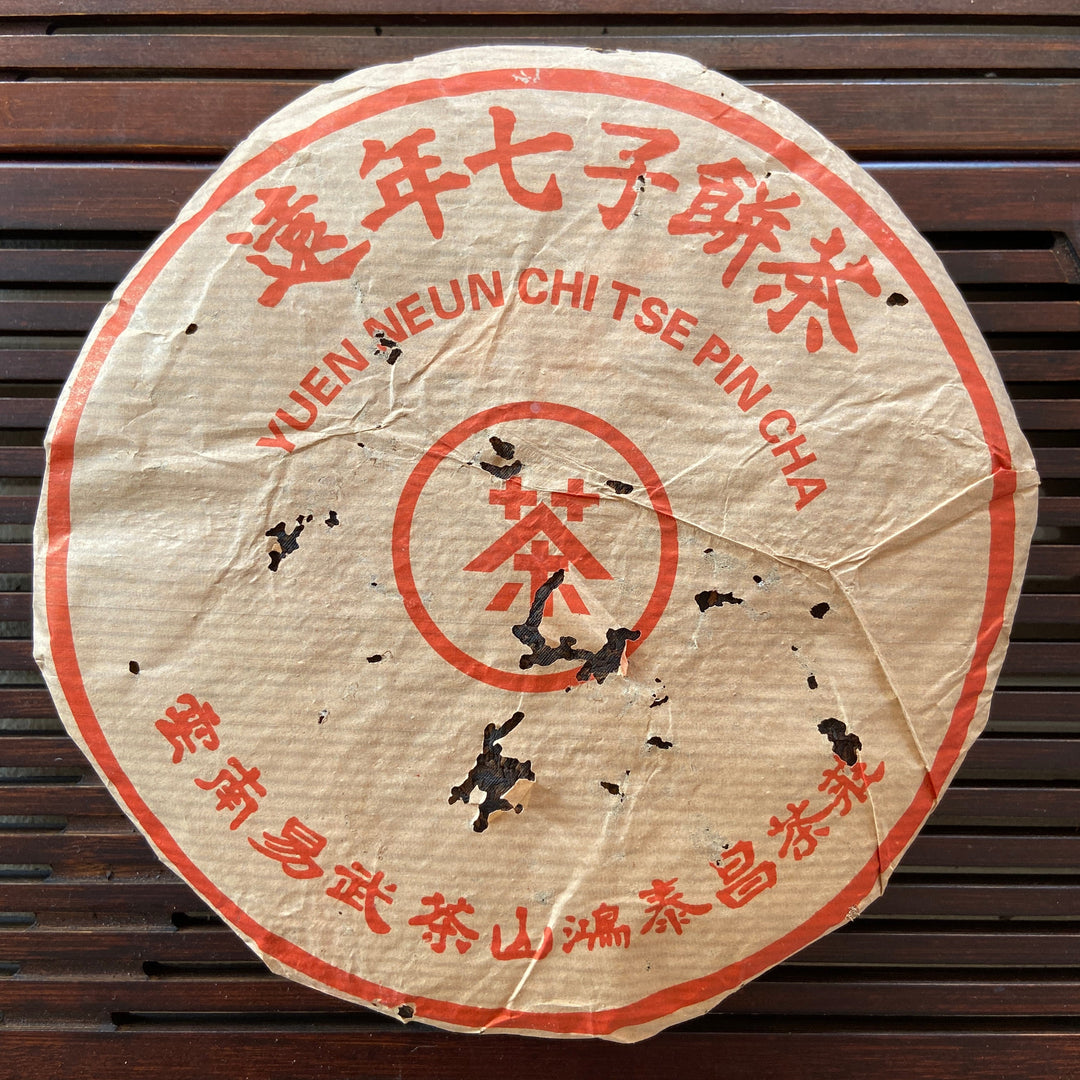 遠年七子餅茶
YUEN NEUN CHI TSE PIN CHA
茶
雲南易武茶山鴻泰昌茶莊